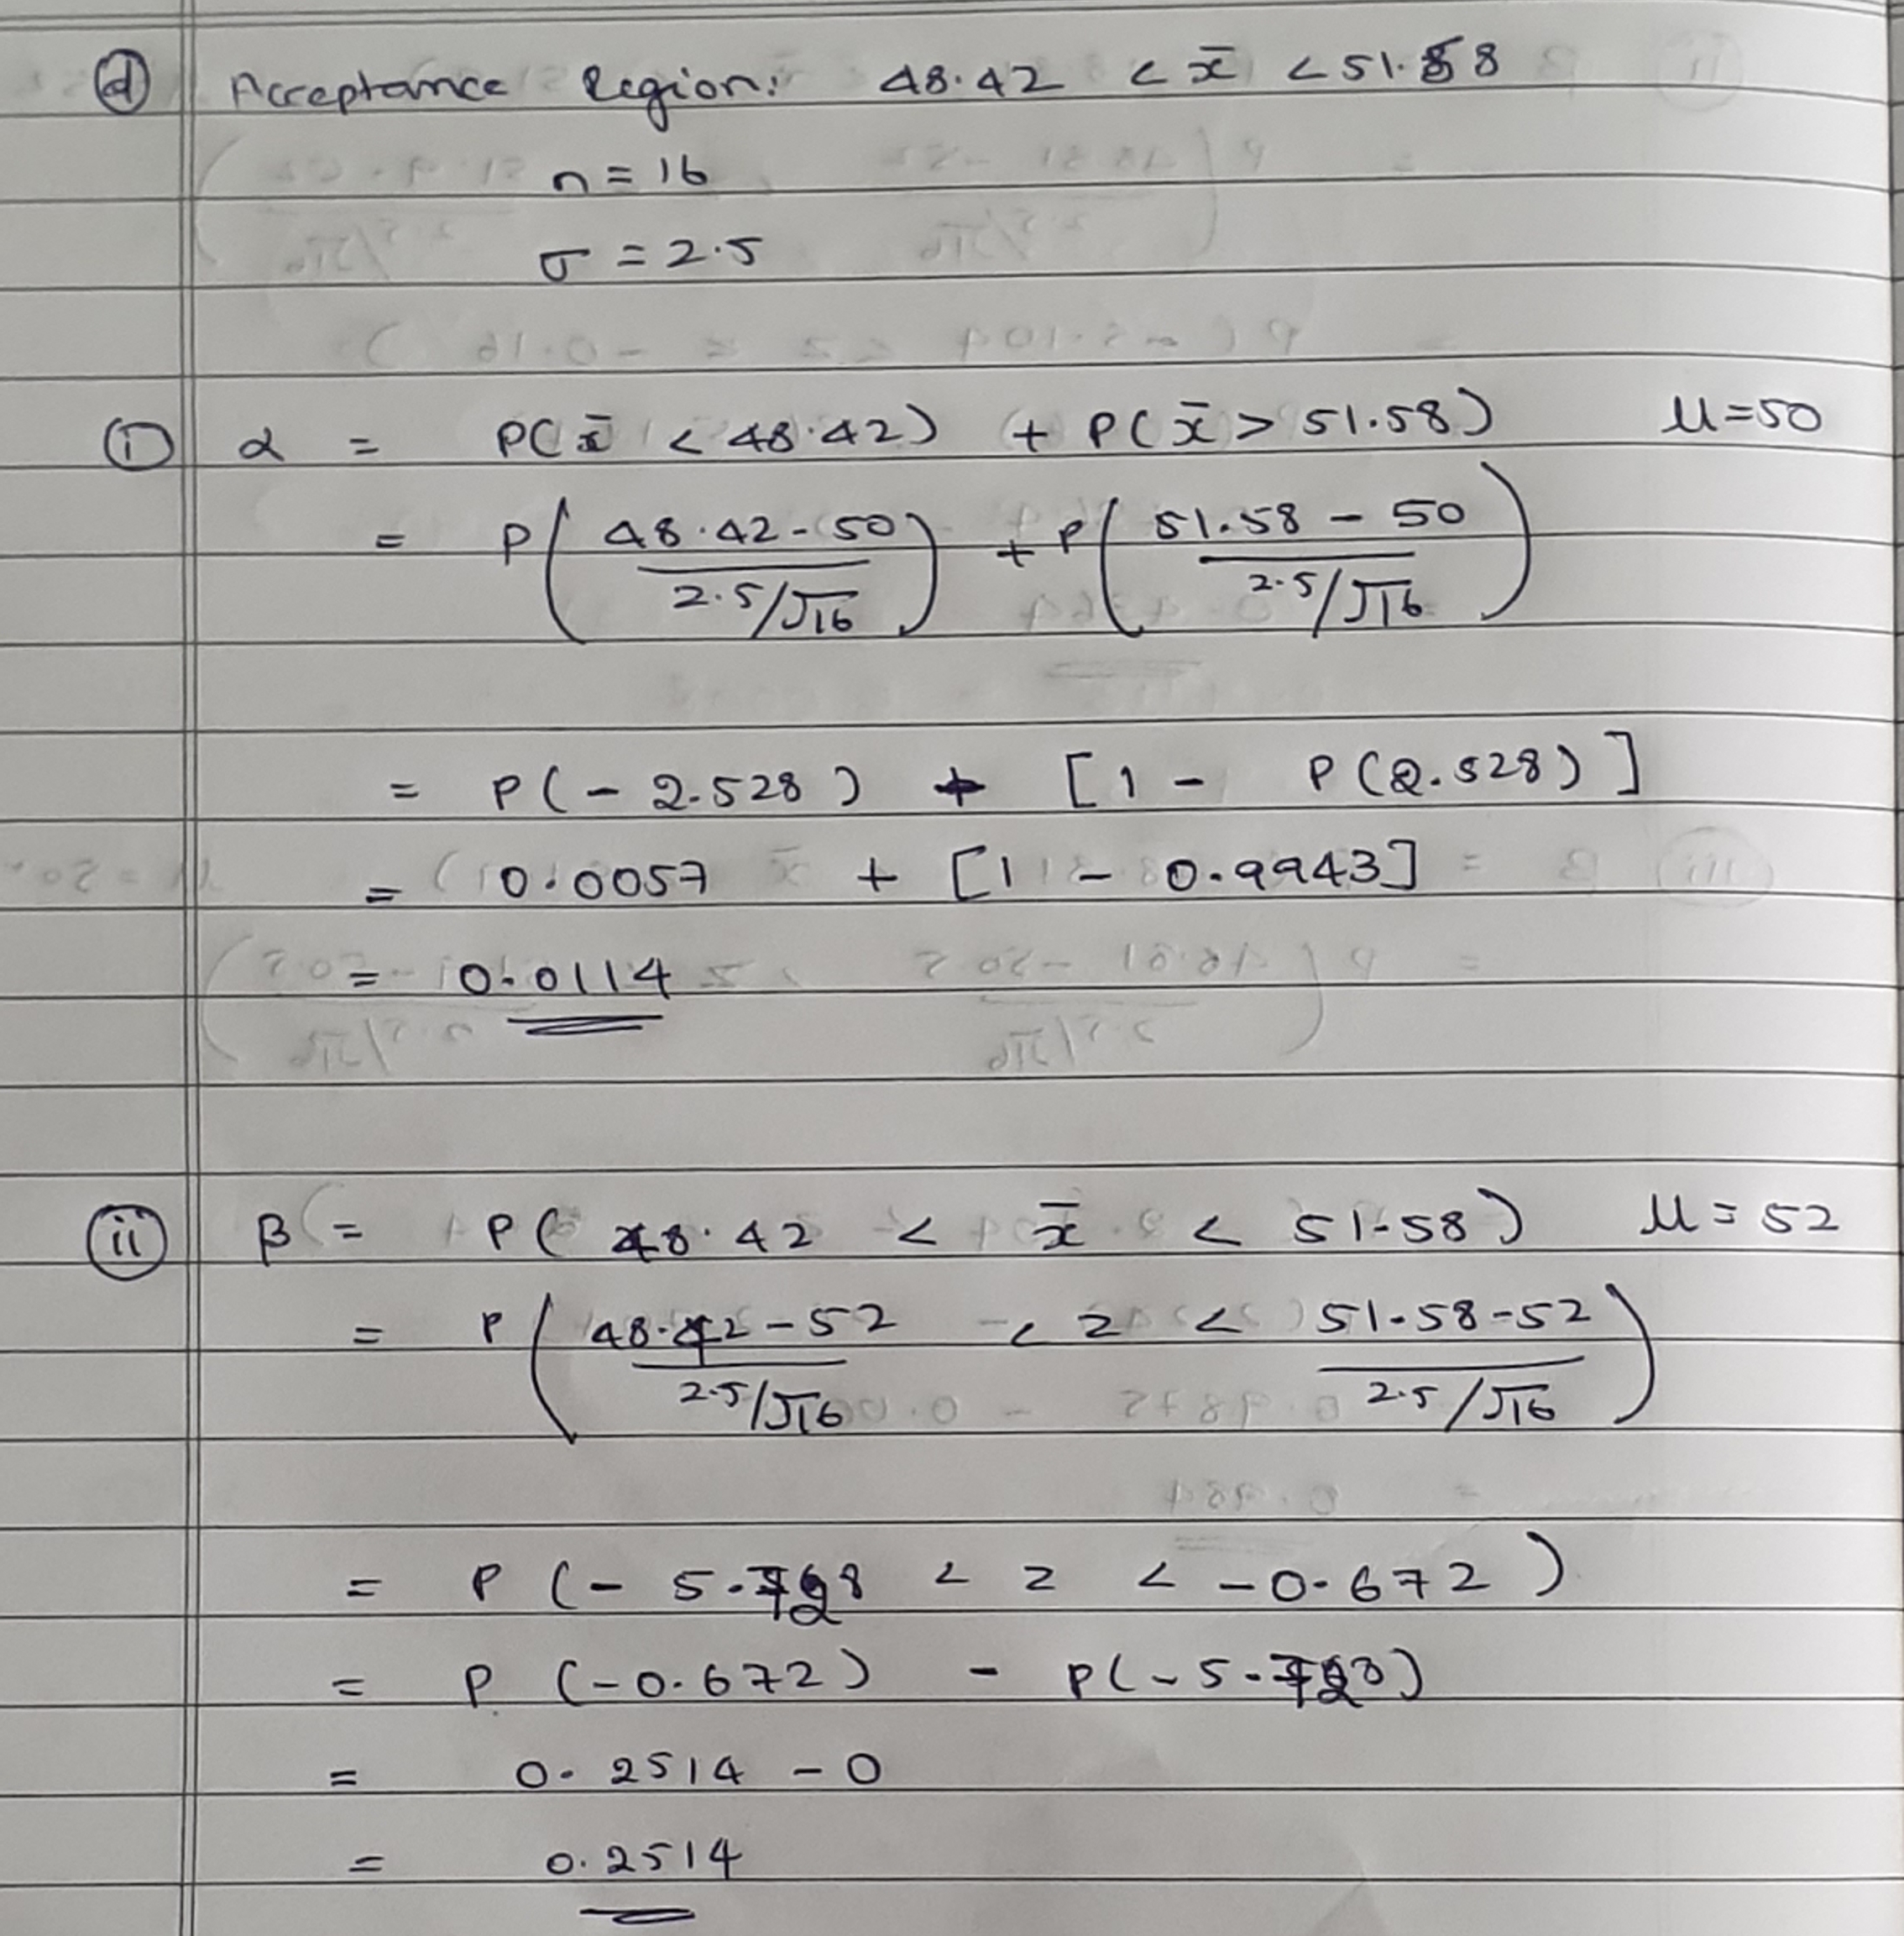 (d) Acceptance Region: 48.42 < x̄ < 51.58
n = 16
σ = 2.5
(i) α = P(x̄ < 48.42) + P(x̄ > 51.58) μ=50
= P((48.42-50)/(2.5/√16)) + P((51.58 - 50)/(2.5/√16))
= P(- 2.528) + [1 - P(2.528)]
= 0.0057 + [1 - 0.9943]
= 0.0114
(ii) β = P(48.42 < x̄ < 51.58) μ = 52
= P((48.42-52)/(2.5/√16) < z < (51.58-52)/(2.5/√16))
= P(- 5.728 < z < -0.672)
= P(-0.672) - P(-5.728)
= 0.2514 - 0
= 0.2514